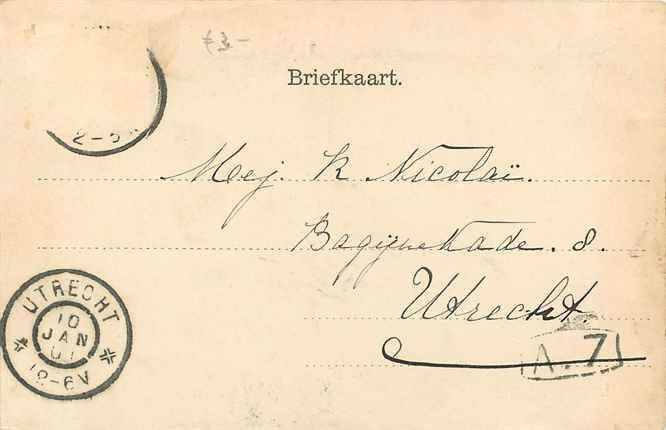 £3-
Briefkaart.
2-5
Mej. K Nicolaï.
Bagijnekade. 8.
Utrecht.
UTRECHT
10
JAN
01
12-6V
A.7